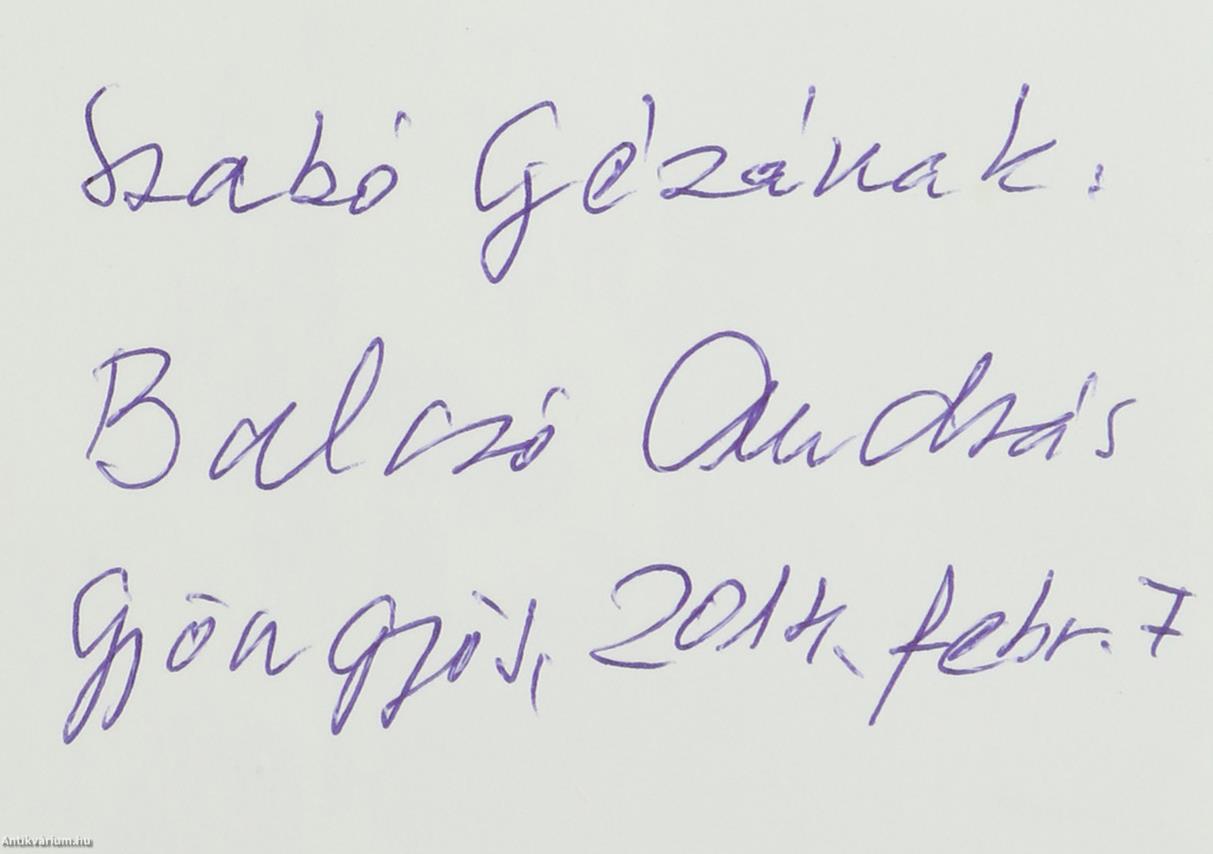 Szabó Gézának:
Balczó András
Gyöngyös, 2014. febr. 7
Antikvárium.hu